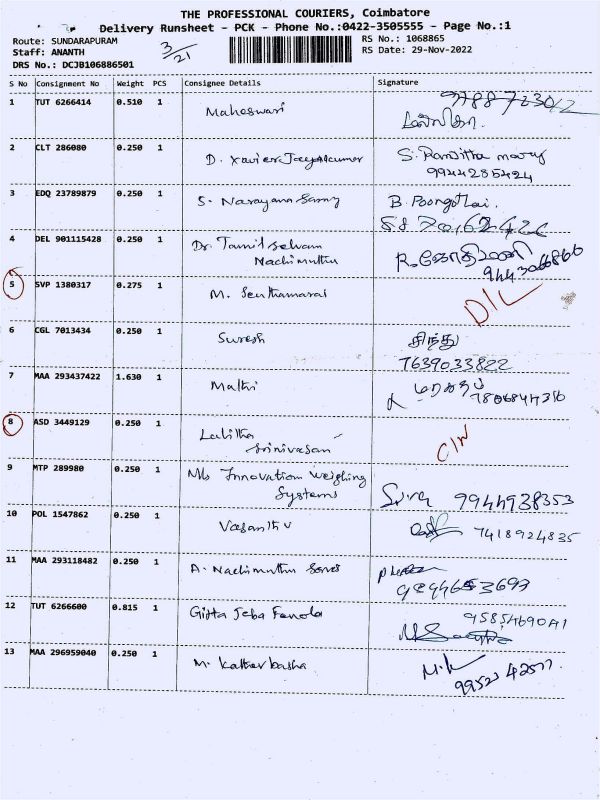 THE PROFESSIONAL COURIERS, Coimbatore
Delivery Runsheet - PCK - Phone No.:0422-3505555 - Page No.:1
Route: SUNDARAPURAM
3/21
RS No.: 1068865
Staff: ANANTH
RS Date: 29-Nov-2022
DRS No.: DCJB106886501
S No Consignment No Weight PCS Consignee Details Signature
1 TUT 6266414 0.510 1 Maheswari
2 CLT 286080 0.250 1 D. Xavier Jayakumar S. Ranjitha mary
9944285424
3 EDQ 23789879 0.250 1 S. Narayana Samy B. Poongothai.
4 DEL 901115428 0.250 1 Dr. Tamil Selvam
Nachimuthu
R. ஜோதிமணி
5 SVP 1380317 0.275 1 M. Senthamarai D/L
6 CGL 7013434 0.250 1 Suresh சிந்து
7639033822
7 MAA 293437422 1.630 1 Mathi
8 ASD 3449129 0.250 1 Lalitha
Srinivasan
9 MTP 289980 0.250 1 M/s Innovation Weighing
Systems
9944938353
10 POL 1547862 0.250 1 Vasanth V 7418924835
11 MAA 293118482 0.250 1 A. Nachimuthu Sons
12 TUT 6266600 0.815 1 Gijta Jeba
13 MAA 296959040 0.250 1 M. Kather basha M.K